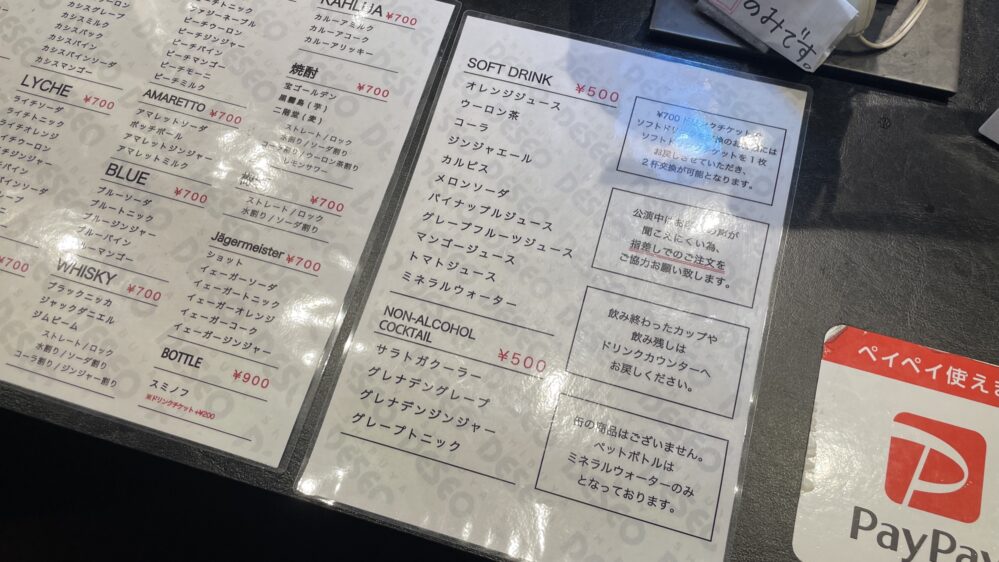 カシスグレープ
カシスパック
カシスパイン
カシスパインソーダ
カシスマンゴー
LYCHE
¥700
ライチソーダ
ライチトニック
ピーチジンジャー
ピーチウーロン
ピーチマンゴー
ピーチパイン
ピーチモーニ
ピーチミルク
AMARETTO
¥700
アマレットソーダ
ボッチボール
アマレットジンジャー
アマレットミルク
BLUE
¥700
ブルーソーダ
ブルートニック
ブルージンジャー
ブルーパイン
ブルーマンゴー
¥700
WHISKY
¥700
ブラックニッカ
ジャックダニエル
ジムビーム
ストレート/ロック
水割り/ソーダ割り
コーラ割り/ジンジャー割り
KAHLUA
¥700
カルーアミルク
カルーアコーク
カルーアリッキー
焼酎
¥700
宝ゴールデン
黒霧島(芋)
二階堂(麦)
ストレート/ロック
水割り/ソーダ割り
レモンサワー
¥700
ストレート/ロック
水割り/ソーダ割り
Jägermeister
¥700
ショット
イェーガーソーダ
イェーガートニック
イェーガーオレンジ
イェーガーコーク
イェーガージンジャー
BOTTLE
¥900
スミノフ
※ドリンクチケット+¥200
SOFT DRINK
¥500
オレンジジュース
ウーロン茶
コーラ
ジンジャエール
カルピス
メロンソーダ
パイナップルジュース
グレープフルーツジュース
マンゴージュース
トマトジュース
ミネラルウォーター
NON-ALCOHOL
COCKTAIL
¥500
サラトガクーラー
グレナデングレープ
グレナデンジンジャー
グレープトニック
¥700
ソフトドリンクチケットを1枚
お戻しさせていただき、
2杯交換が可能となります。
公演中は
聞こえにくい為、
指差しでのご注文を
ご協力お願い致します。
飲み終わったカップや
飲み残しは
ドリンクカウンターへ
お戻しください。
缶の商品はございません。
ペットボトルは
ミネラルウォーターのみ
となっております。
のみです。
ペイペイ使えま
PayPay